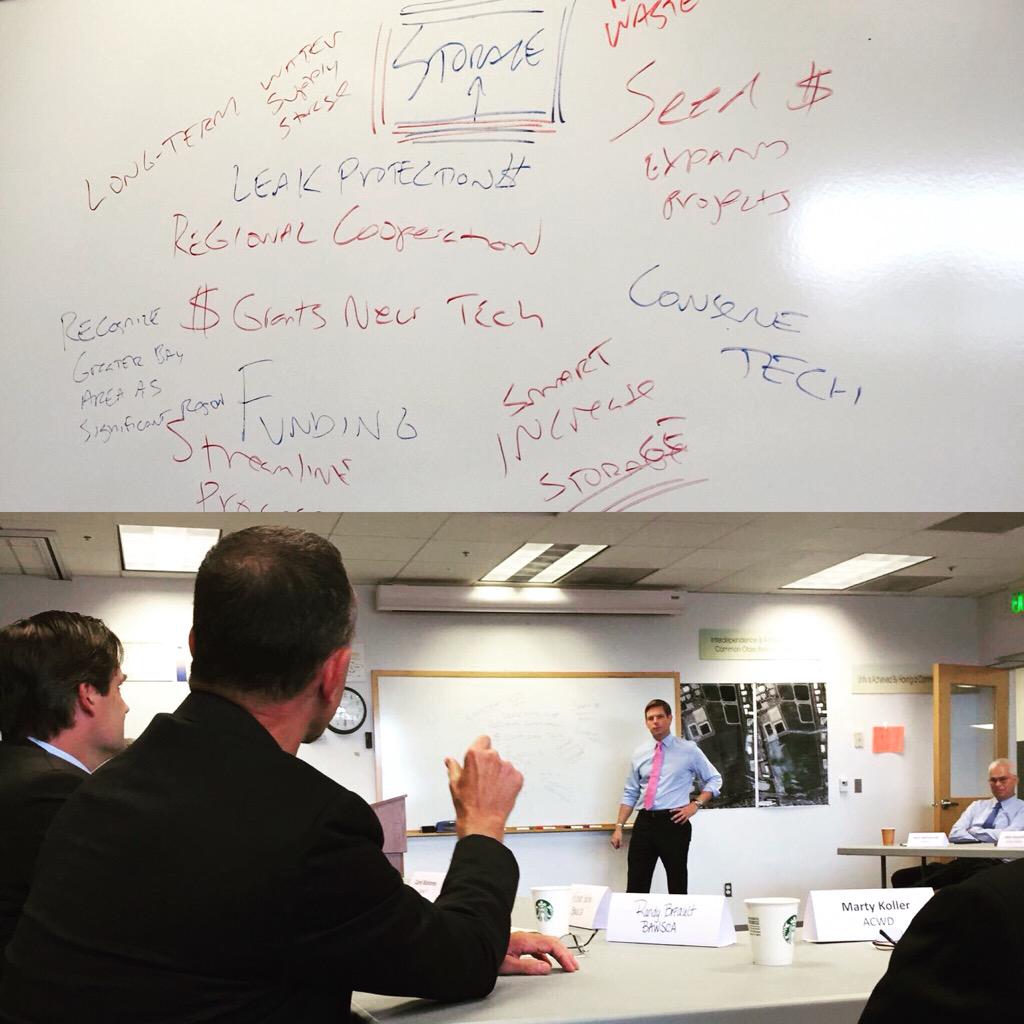 STORAGE
WASTE
LONG-TERM WATER
Supply
Storage
Seed $
EXPAND
Projects
LEAK PROTECTION $
REGIONAL Cooperation
$ Grants New Tech
RECOGNIZE
GREATER BAY
AREA AS
Significant Region
FUNDING
Streamline
CONSERVE
TECH
SMART
INCREASE
STORAGE
Interdependence &
Common
Randy Breault
BAWSCA
Marty Koller
ACWD